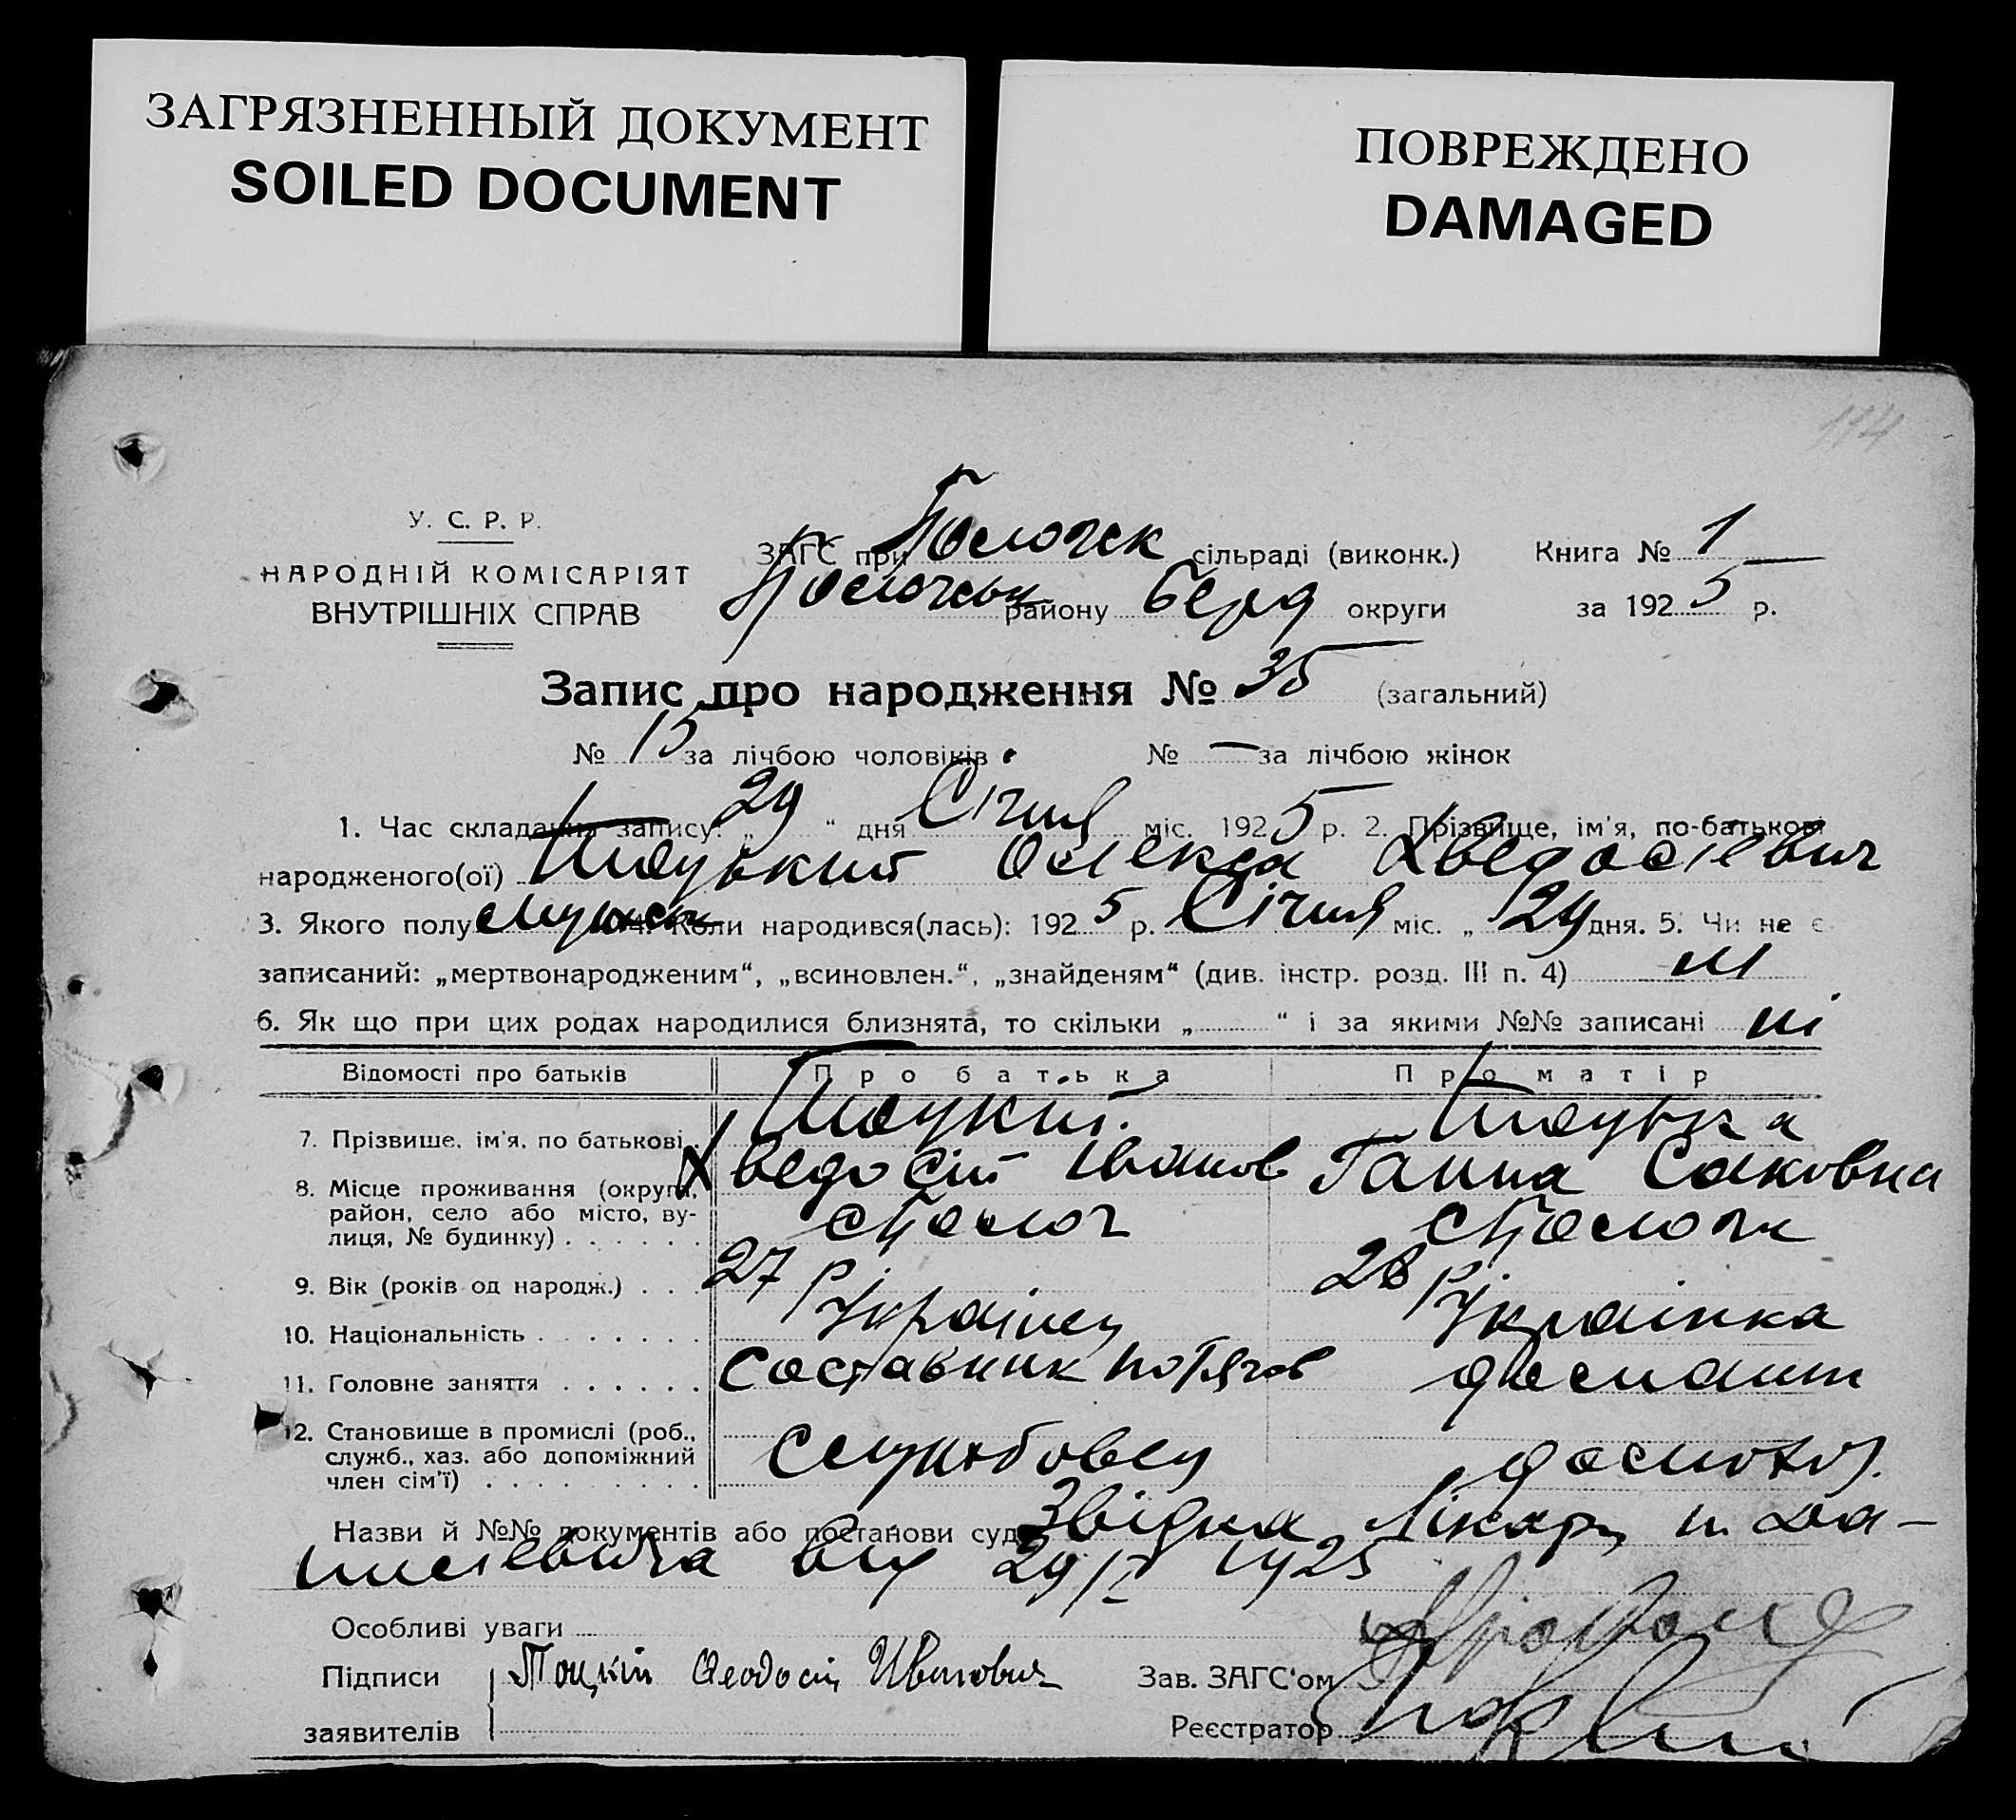 ЗАГРЯЗНЕННЫЙ ДОКУМЕНТ
SOILED DOCUMENT
ПОВРЕЖДЕНО
DAMAGED
114
У. С. Р. Р.
НАРОДНІЙ КОМІСАРІЯТ
ВНУТРІШНІХ СПРАВ
ЗАГС при Пологск сільраді (виконк.)
району Берд округи
Книга № 1
за 1925 р.
Запис про народження № 35 (загальний)
№ 15 за лічбою чоловіків № — за лічбою жінок
1. Час складання запису: „ 29 “ дня Січня міс. 1925 р. 2. Прізвище, ім'я, по-батькові
народженого(ої) Тоцький Олекса Хведосієвич
3. Якого полу мужск 4. Коли народився(лась): 1925 р. Січня міс. „ 29 дня. 5. Чи не є
записаний: „мертвонародженим“, „всиновлен.“, „знайденям“ (див. інстр. розд. III п. 4) ні
6. Як що при цих родах народилися близнята, то скільки „ “ і за якими №№ записані ні
Відомості про батьків Про батька Про матір
7. Прізвише, ім'я, по батькові Тоцкий Хведосій Іванов Тоцька Ганна Саковна
8. Місце проживання (округа, район, село або місто, вулиця, № будинку) с Полог с Пологи
9. Вік (років од народж.) 27 р 28 р
10. Національність Українец Українка
11. Головне заняття Составник потягов
12. Становище в промислі (роб., служб., хаз. або допоміжний член сім'ї) Службовец
Назви й №№ документів або постанови суд Звідка Лікаря
від 29/I 1925
Особливі уваги
Підписи Тоцкий Феодосий Иванович Зав. ЗАГС'ом
заявителів Реєстратор